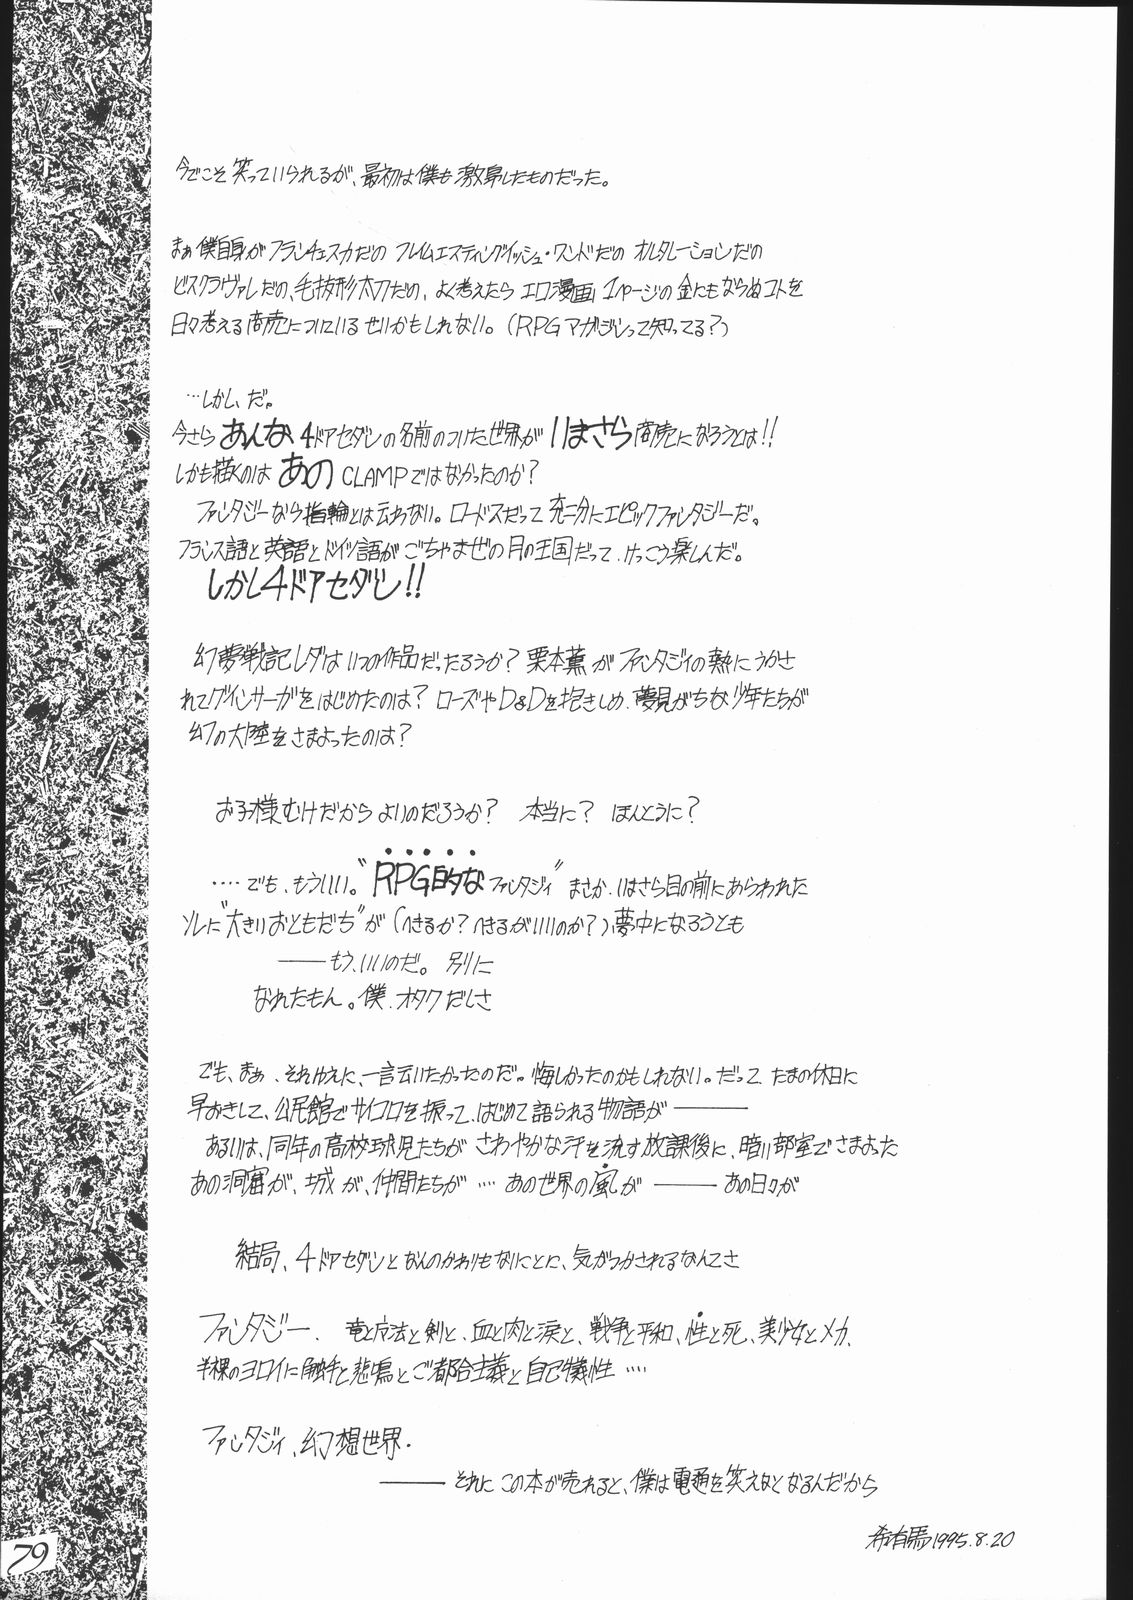 今でこそ笑っていられるが、最初は僕も激昂したものだった。
まぁ僕自身がフランチェスカだの フレイムエスティングイッシュ・ワンドだの オルタレーションだの
ビスクラヴァレだの、毛抜形太刀だの、よく考えたら エロ漫画 1ページの金にもならぬコトを
日々考える商売についているせいかもしれない。(RPGマガジンって知ってる?)
…しかし、だ。
今さら あんな 4ドアセダンの名前のついた世界が いまさら 商売になろうとは!!
しかも描くのは あの CLAMPではなかったのか?
ファンタジーなら指輪とは云わない。ロードスだって 充二分にエピックファンタジーだ。
フランス語と英語とドイツ語が ごちゃまぜの月の王国だって、けっこう楽しんだ。
しかし4ドアセダン!!
幻夢戦記レダは いつの作品だったろうか? 栗本薫が ファンタジィの熱にうかさ
れてグインサーガをはじめたのは? ローズや D&Dを抱きしめ、夢見がちな少年たちが
幻の大陸をさまよったのは?
お子様むけだから よいのだろうか? 本当に? ほんとうに?
‥‥でも、もういい。“RPG的なファンタジィ” まさか、いまさら目の前にあらわれた
ソレに“大きいおともだち”が (へきるか? へきるがいいのか?) 夢中になろうとも
――もう、いいのだ。別に
なれたもん。僕、オタクだしさ
でも、まぁ、それゆえに、一言云いたかったのだ。悔しかったのかもしれない。だって たまの休日に
早おきして、公民館でサイコロを振って、はじめて語られる物語が――
あるいは、同年の高校球児たちが さわやかな汗を流す放課後に、暗い部室でさまよった
あの洞窟が、城が、仲間たちが ‥‥ あの世界の風が ―― あの日々が
結局、4ドアセダンとなんのかわりもないことに、気がつかされるなんてさ
ファンタジー、 竜と魔法と剣と、血と肉と涙と、戦争と平和、性と死、美少女とメカ、
半裸のヨロイに触手と悲鳴とご都合主義と自己犠牲 ‥‥
ファンタジィ、幻想世界.
―― それに この本が売れると、僕は電通を笑えなくなるんだから
希有馬 1995.8.20
79